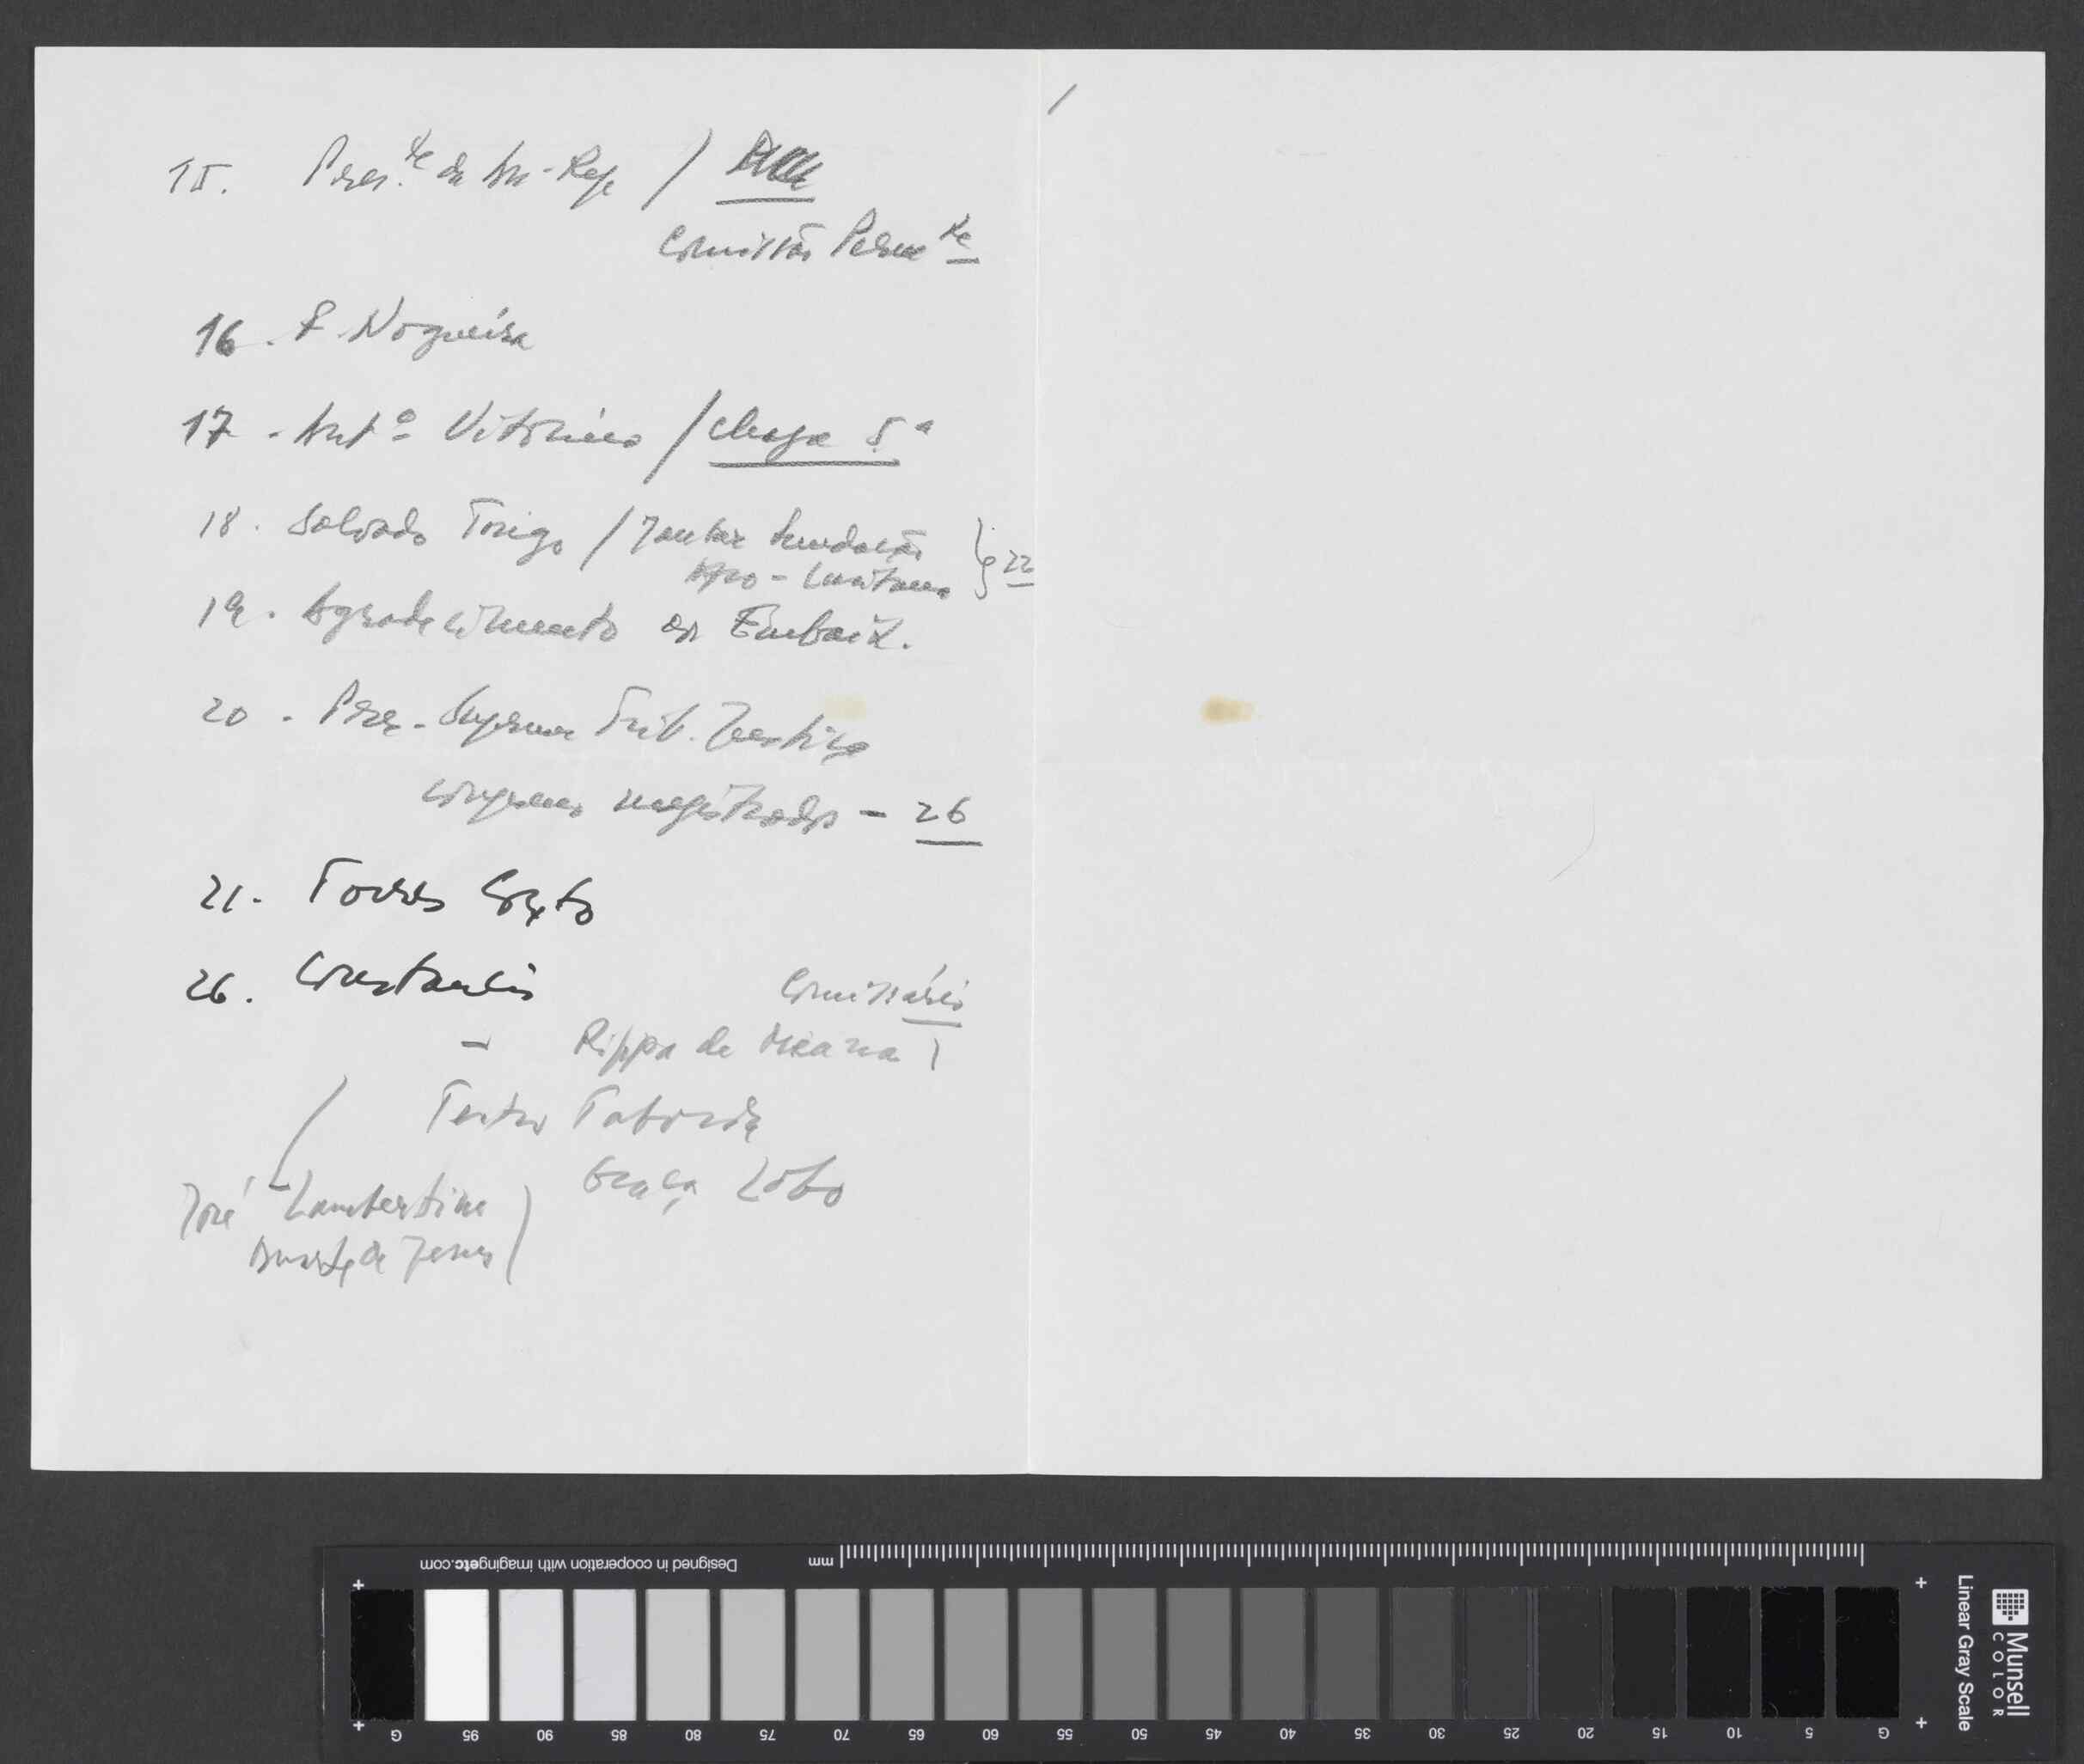 15. Pres.te da Ass. Rep /
Comissão Perm.te
16. F. Nogueira
17. Antº Vitorino / chega 5ª
18. Salvado Trigo / Jantar Fundação } 22
Afro-Lusitana
19. Agradecimento ao Embaix.
20. Pres. Supremo Trib. Justiça
congresso magistrados - 26
21. Torres Couto
26. Constâncio
Comissário
- Rippa de Meana
Teatro Taborda
Graça Lobo
José Lambertini
Duarte de Jesus
Designed in cooperation with imagingetc.com
mm
G 95 90 85 80 75 70 65 60 55 50 45 40 35 30 25 20 15 10 5 G
Linear Gray Scale
Munsell
COLOR